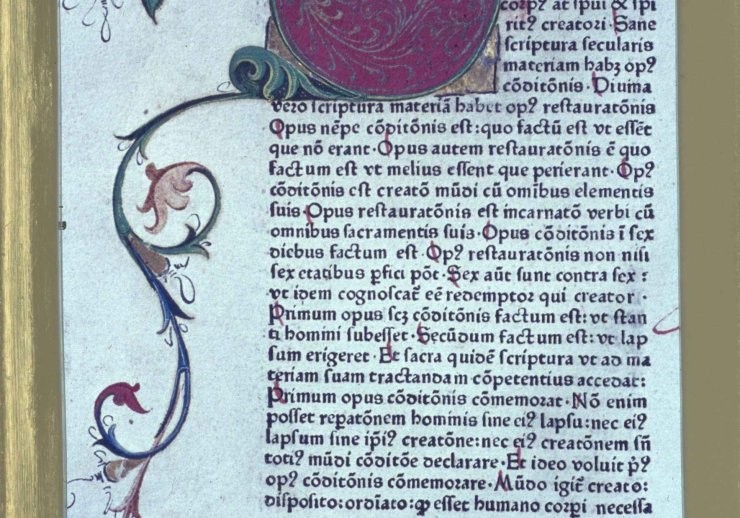 corpꝰ at spūi & spi
ritꝰ creatori · Sane
scriptura secularis
materiam habꝫ opꝰ
cōditōnis · Diuina
vero scriptura materiā habet opꝰ restauratōnis
Opus nēpe cōditōnis est: quo factū est vt essēt
que nō erant · Opus autem restauratōnis ē quo
factum est vt melius essent que perierant · Opꝰ
cōditōnis est creatō mūdi cū omībus elementis
suis · Opus restauratōnis est incarnatō verbi cū
omnibus sacramentis suis · Opus cōditōnis ī sex
diebus factum est · Opꝰ restauratōnis non nisi
sex etatibus ꝑfici pōt · Sex aūt sunt contra sex :
vt idem cognoscat᷑ eē redemptor qui creator ·
Primum opus scꝫ cōditōnis factum est: vt stan
ti homini subesset · Secūdum factum est: vt lap
sum erigeret · Et sacra quidē scriptura vt ad ma
teriam suam tractandam cōpetentius accedat:
Primum opus cōditōnis cōmemorat · Nō enim
posset reꝑatōnem hominis sine eiꝰ lapsu: nec eiꝰ
lapsum sine ip̄iꝰ creatōne: nec eiꝰ creatōnem sn̄
totiꝰ mūdi cōditōe declarare · Et ideo voluit pͥꝰ
opꝰ cōditōnis cōmemorare · Mūdo igit᷑ creato:
disposito: ordīato: ꝙ esset humano corpi necessa